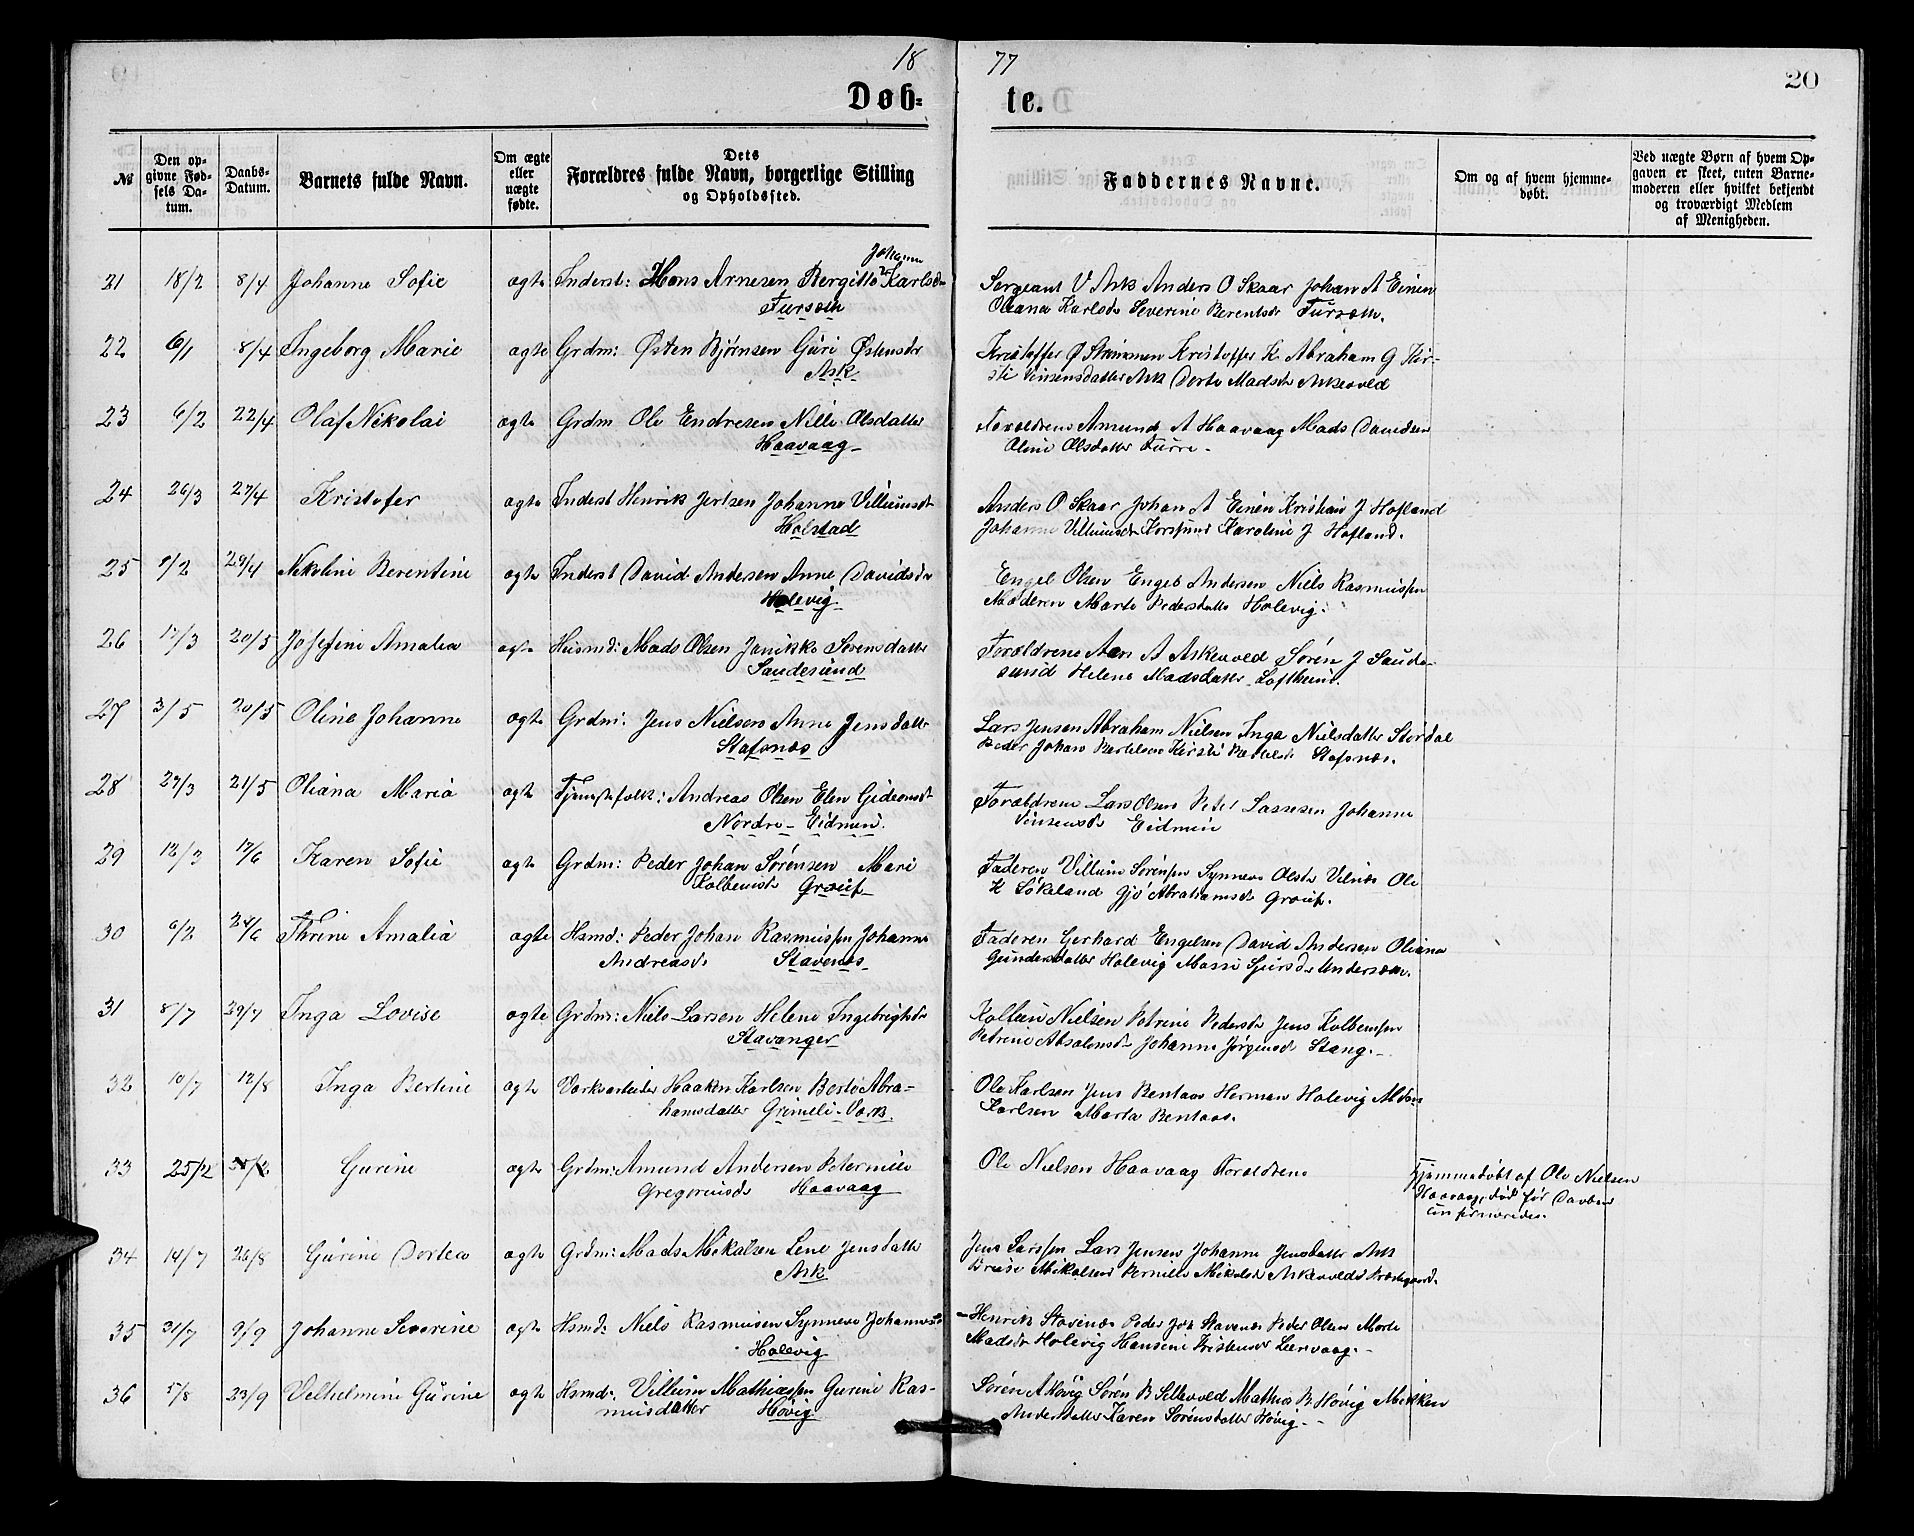 18 77
20
Døb- te.
№
Den opgivne Fødsels Datum.
Daabs-Datum.
Barnets fulde Navn.
Om ægte eller uægte fødte.
Dets Forældres fulde Navn, borgerlige Stilling og Opholdssted.
Faddernes Navne.
Om og af hvem hjemmedøbt.
Ved uægte Børn af hvem Opgaven er skeet, enten Barnemoderen eller hvilket bekjendt og troværdigt Medlem af Menigheden.
21 18/2 8/4 Johanne Sofie ægte Inderst: Hans Arnesen Bergitte Johanne Karlsdr
Fursæth
Sergeant V Ask Anders O Skaar Johan A Einen
Oliana Karlsdr Severine Berentsdr Fursæth.
22 6/1 8/4 Ingeborg Marie ægte Grdm: Østen Bjørnsen Guri Østensdr
Ask
Kristoffer Ø Kristoffer K Abraham G Kir-
sti Vinsensdatter Ask Dorte Madsdr Askevold
23 6/2 22/4 Olaf Nikolai ægte Grdm Ole Endresen Nille Olsdatter
Haavaag
Forældrene Amund A Haavaag Mads Davidsen
Oline Olsdatter Furre.
24 26/3 27/4 Kristofer ægte Inderst Henrik Jertsen Johanne Villumsdr
Holstad
Anders O Skaar Johan A Einen Kristian J Hofland
Johanne Villumsdr Korssund Karoline J Hofland.
25 9/2 29/4 Nikoline Berentine ægte Inderst David Andersen Anne Davidsdr
Holevig
Engel Olsen Engel Andersen Niels Rasmussen
Moderen Marte Pedersdatter Holevig.
26 17/3 20/5 Josefine Amalia ægte Husmd: Mads Olsen Janikke Sørensdatter
Saudesund
Forældrene A Askevold Søren J Saude-
sund Helene Madsdatter
27 3/5 20/5 Oline Johanne ægte Grdm: Jens Nielsen Anne Jensdatter
Stafsnes
Lars Jensen Abraham Nielsen Inga Nielsdatter Stordal
Peder Johan Bertelsen Kirsti Stafsnes.
28 27/3 21/5 Oliana Maria ægte Tjenestefolk: Andreas Olsen Elen Gideonsdr
Nordre Eidmun.
Forældrene Lars Olsen Peter Lassesen Johanne
Vinsensdr Eidmun
29 12/3 17/6 Karen Sofie ægte Grdm: Peder Johan Sørensen Mari
Kolbensdr
Faderen Villum Sørensen Synneve Olsdr Vilnes Ole
K Løkeland Gjø Abrahamsdr
30 6/2 24/6 Thrine Amalia ægte Hsmd: Peder Johan Rasmussen Johanne
Andreasdr Stavenes
Faderen Gerhard Engelsen David Andersen Oliana
Gundersdatter Holevig Massi Sjursdr
31 8/7 29/7 Inga Lovise ægte Grdm: Niels Larsen Helene Ingebrigtsdr
Stavanger
Kolben Nielsen Petrine Pedersdr Jens Kolbensen
Petrine Absalonsdr Johanne Jørgensdr Stang.
32 10/7 12/8 Inga Bertine ægte Værksarbeider Haaken Karlsen Berte Abra-
hamsdatter Grimeli Værk.
Ole Karlsen Jens Bentaas Herman Holevig
Karlsen Marta Bentaas.
33 25/2 Gurine ægte Grdm: Amund Andersen Petermile
Gregoriusdr Haavaag
Ole Nielsen Haavaag Forældrene
Hjemmedøbt af Ole Nielsen
Haavaag, død før Daaben
confirmeredes.
34 14/7 26/8 Gurine Dortea ægte Grdm: Mads Mikalsen Lene Jensdatter
Ask
Jens Larssen Lars Jensen Johanne Jensdatter Ask
Mikalsen Pernille Mikalsdr Askevolds Præstegaard.
35 31/7 9/9 Johanne Severine ægte Hsmd: Niels Rasmussen Synneve Johannesdr
Holevig
Henrik Stavenes Peder Joh Stavenes Peder Olsen Marte
Madsdr Holevig Hansine Kristensdr Leervaag.
36 5/8 23/9 Velhelmine Gurine ægte Hsmd: Villum Mathiassen Gurine Ras-
musdatter Høvig
Søren A Høvig Søren B Sellevold Mathias B Høvig Mikken
Andersdatter Karen Sørensdatter Høvig.